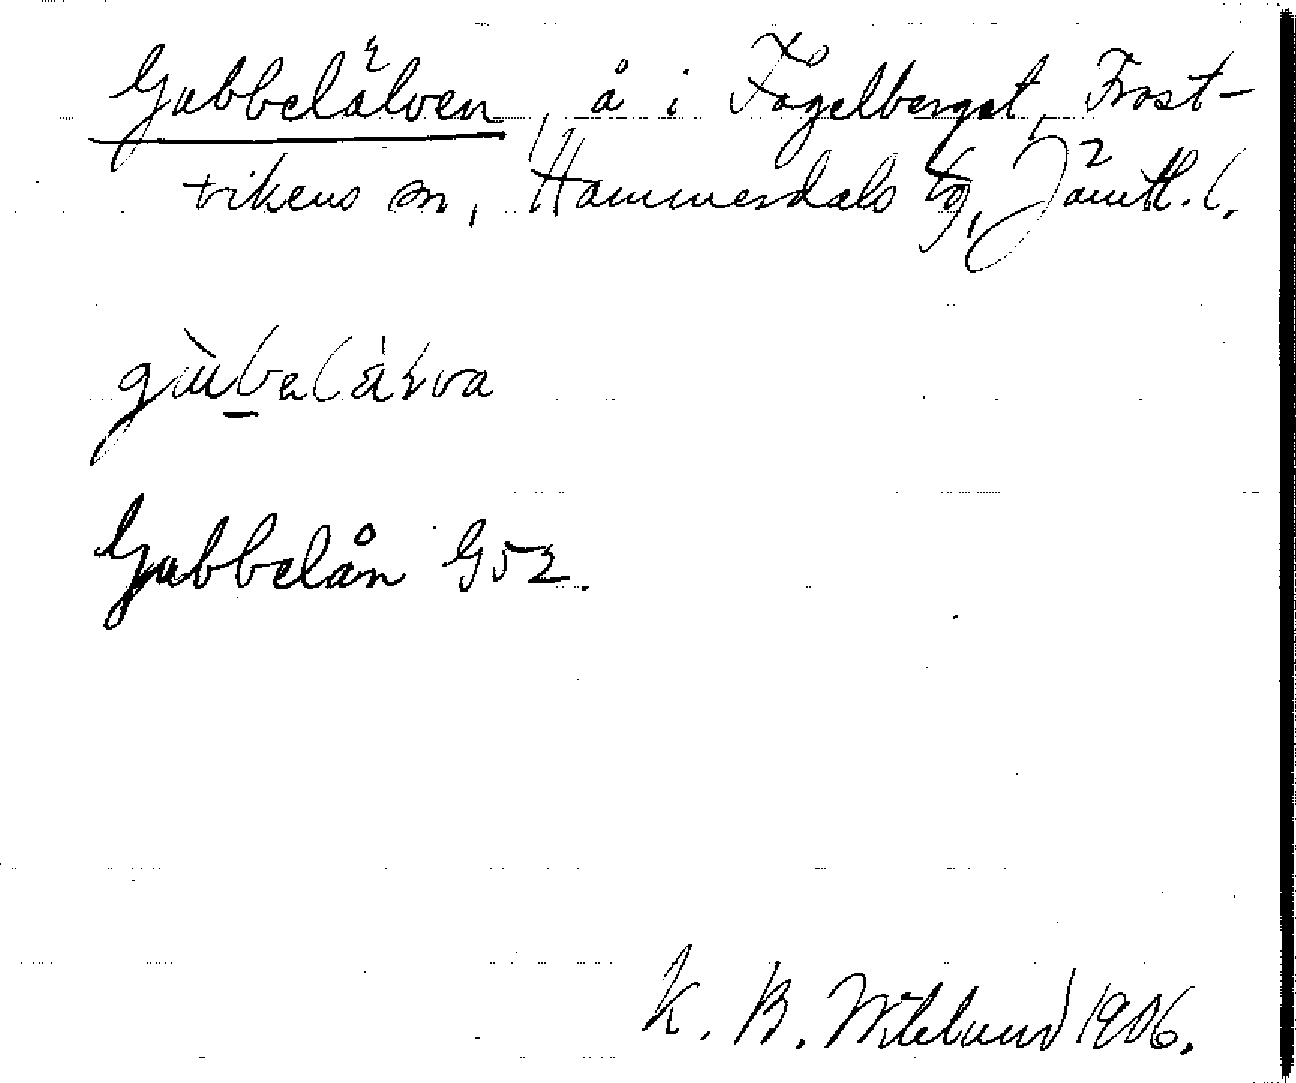 Gubbelälven, å i Fågelberget, Frost-
vikens sn, Hammerdals tg, Jämtl. l.
Gubbelån G52.
K. B. Wiklund 1906.